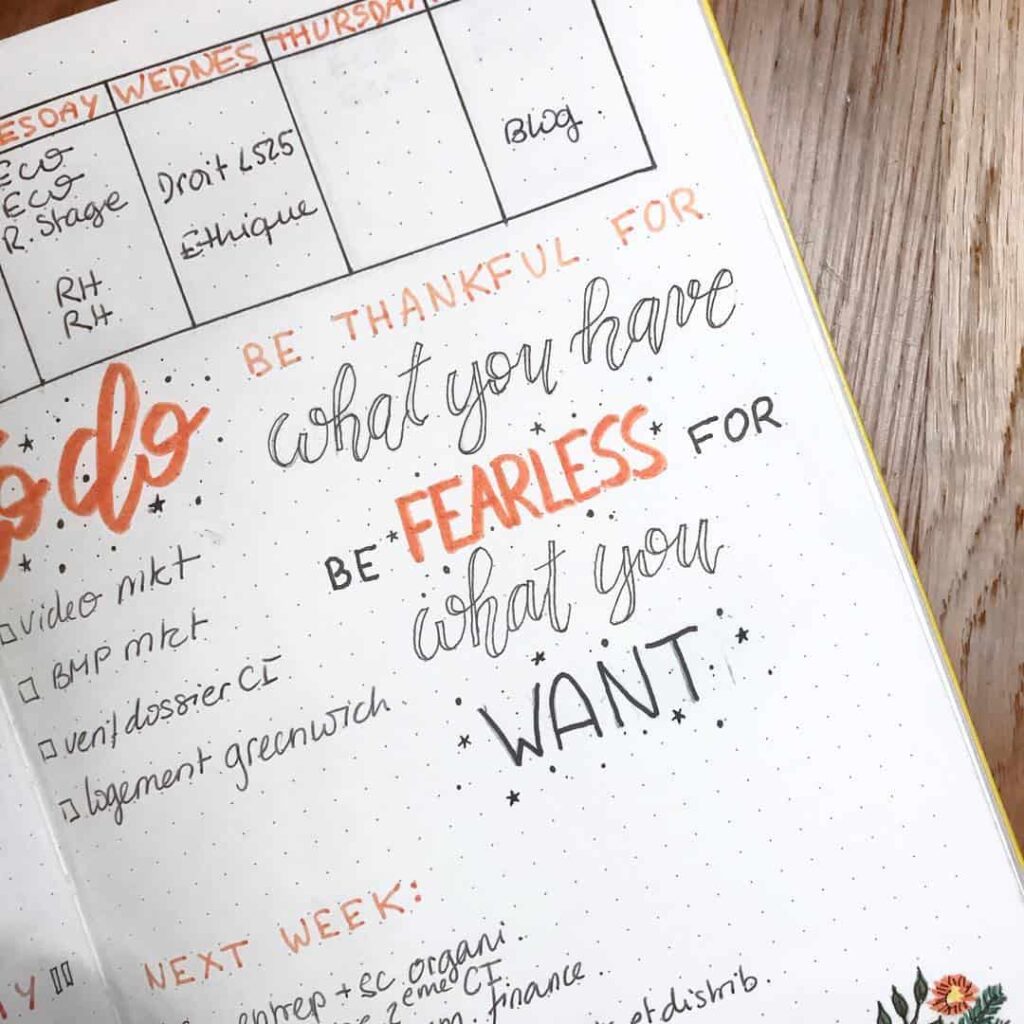 ESDAY WEDNES THURSDAY
Eco
Eco
R. Stage
RH
RH
Droit LS25
Ethique
Blog
BE THANKFUL FOR
what you have
BE FEARLESS FOR
what you
WANT
o do
video mkt
BMP mkt
verif dossier CI
logement greenwich.
NEXT WEEK:
entrep + sc organi.
2eme CI
finance
et distrib.